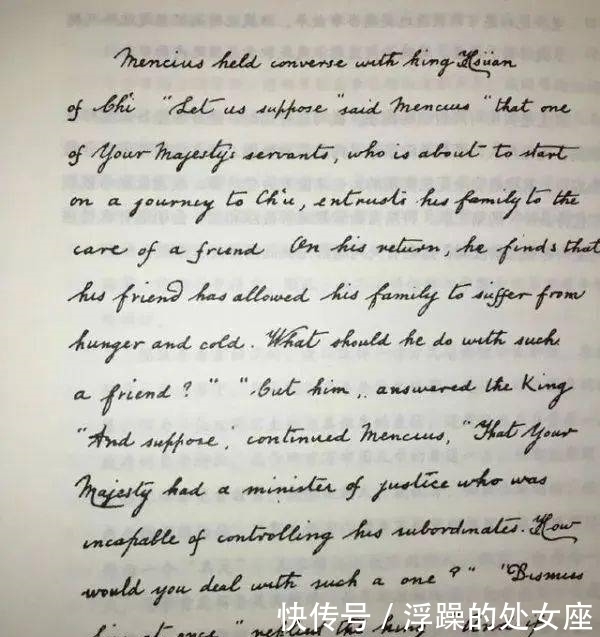 Mencius held converse with king Hsüan
of Chi "Let us suppose" said Mencius "that one
of Your Majesty's servants, who is about to start
on a journey to Ch'u, entrusts his family to the
care of a friend On his return, he finds that
his friend has allowed his family to suffer from
hunger and cold. What should he do with such
a friend?" "Cut him, answered the King
"And suppose, continued Mencius, "That Your
Majesty had a minister of justice who was
incapable of controlling his subordinates. How
would you deal with such a one?" "Dismiss
at once" replied the king
快传号 / 浮躁的处女座